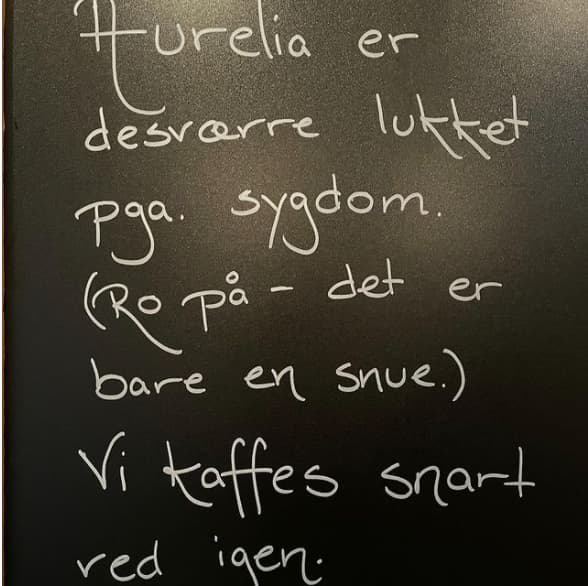 Aurelia er
desværre lukket
pga. sygdom.
(Ro på - det er
bare en snue.)
Vi kaffes snart
ved igen.